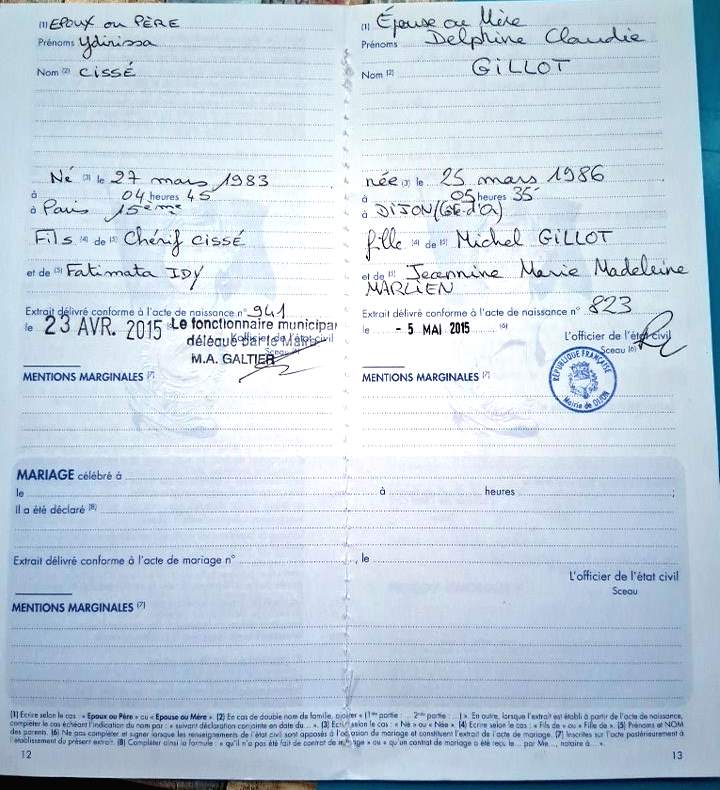 (1) EPOUX ou PÈRE
Prénoms Ydrissa
Nom (2) CISSÉ
Né (3) le 27 mars 1983
à 04 heures 45
à Paris 15ème
Fils (4) de (5) Chérif CISSÉ
et de (5) Fatimata IDY
Extrait délivré conforme à l'acte de naissance n° 941
le 23 AVR. 2015 Le fonctionnaire municipal
délégué par le Maire
L'officier de l'état civil
M.A. GALTIER
Sceau
MENTIONS MARGINALES (7)
(1) Épouse ou Mère
Prénoms Delphine Claudie
Nom (2) GILLOT
née (3) le 25 mars 1986
à 05 heures 35
à DIJON (Côte-d'Or)
fille (4) de (5) Michel GILLOT
et de (5) Jeannine Marie Madeleine
MARLIEN
Extrait délivré conforme à l'acte de naissance n° 823
le - 5 MAI 2015 (6)
L'officier de l'état civil
Sceau (6)
RÉPUBLIQUE FRANÇAISE
Mairie de DIJON
MENTIONS MARGINALES (7)
MARIAGE célébré à
le à heures ;
Il a été déclaré (8)
Extrait délivré conforme à l'acte de mariage n° , le
L'officier de l'état civil
Sceau
MENTIONS MARGINALES (7)
(1) Ecrire selon le cas : « Epoux ou Père » ou « Epouse ou Mère ». (2) En cas de double nom de famille, ajouter « (1ère partie : ... 2ème partie : ...) ». En outre, lorsque l'extrait est établi à partir de l'acte de naissance,
compléter le cas échéant l'indication du nom par : « suivant déclaration conjointe en date du ... ». (3) Ecrire selon le cas : « Né » ou « Née ». (4) Ecrire selon le cas : « Fils de » ou « Fille de ». (5) Prénoms et NOM
des parents. (6) Ne pas compléter et signer lorsque les renseignements de l'état civil sont apposés à l'occasion du mariage et constituent l'extrait de l'acte de mariage. (7) Inscrites sur l'acte postérieurement à
l'établissement du présent extrait. (8) Compléter ainsi la formule : « qu'il n'a pas été fait de contrat de mariage » ou « qu'un contrat de mariage a été reçu le ... par Me ..., notaire à ... ».
12
13